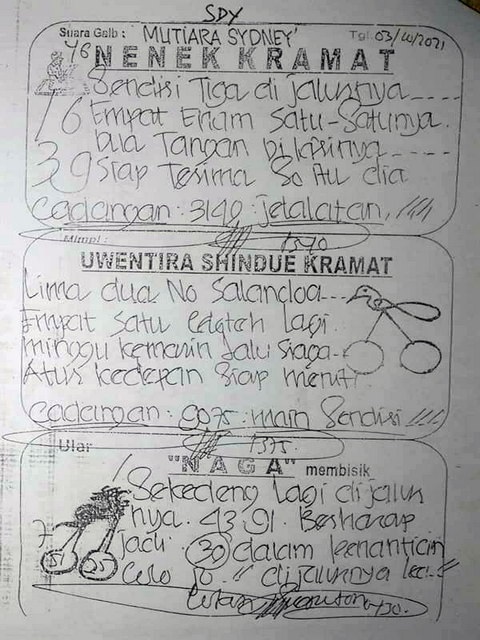 SDY
Suara Gaib : "MUTIARA SYDNEY" Tgl. 03/10/2021
46
NENEK KRAMAT
Sendisi Tiga di jalurnya
16 Empat Enam Satu-Satunya.
Dua Tangan di lapisnya
39 Siap Terima So Au dia
Cadangan : 3140 : jelalatan,
Mimpi : 1370
UWENTIRA SHINDUE KRAMAT
Lima dua No Salandoa
Empat Satu lagi
minggu kemarin jalu siaga
Atur kedepan Siap
Cadangan : 9075 : main Sendisi
1375
Ular
"NAGA" membisik
Sekedeng lagi di jalur
7 nya. 4391. Berharap
jadi (30) dalam penantian
Colo jo di jalurnya